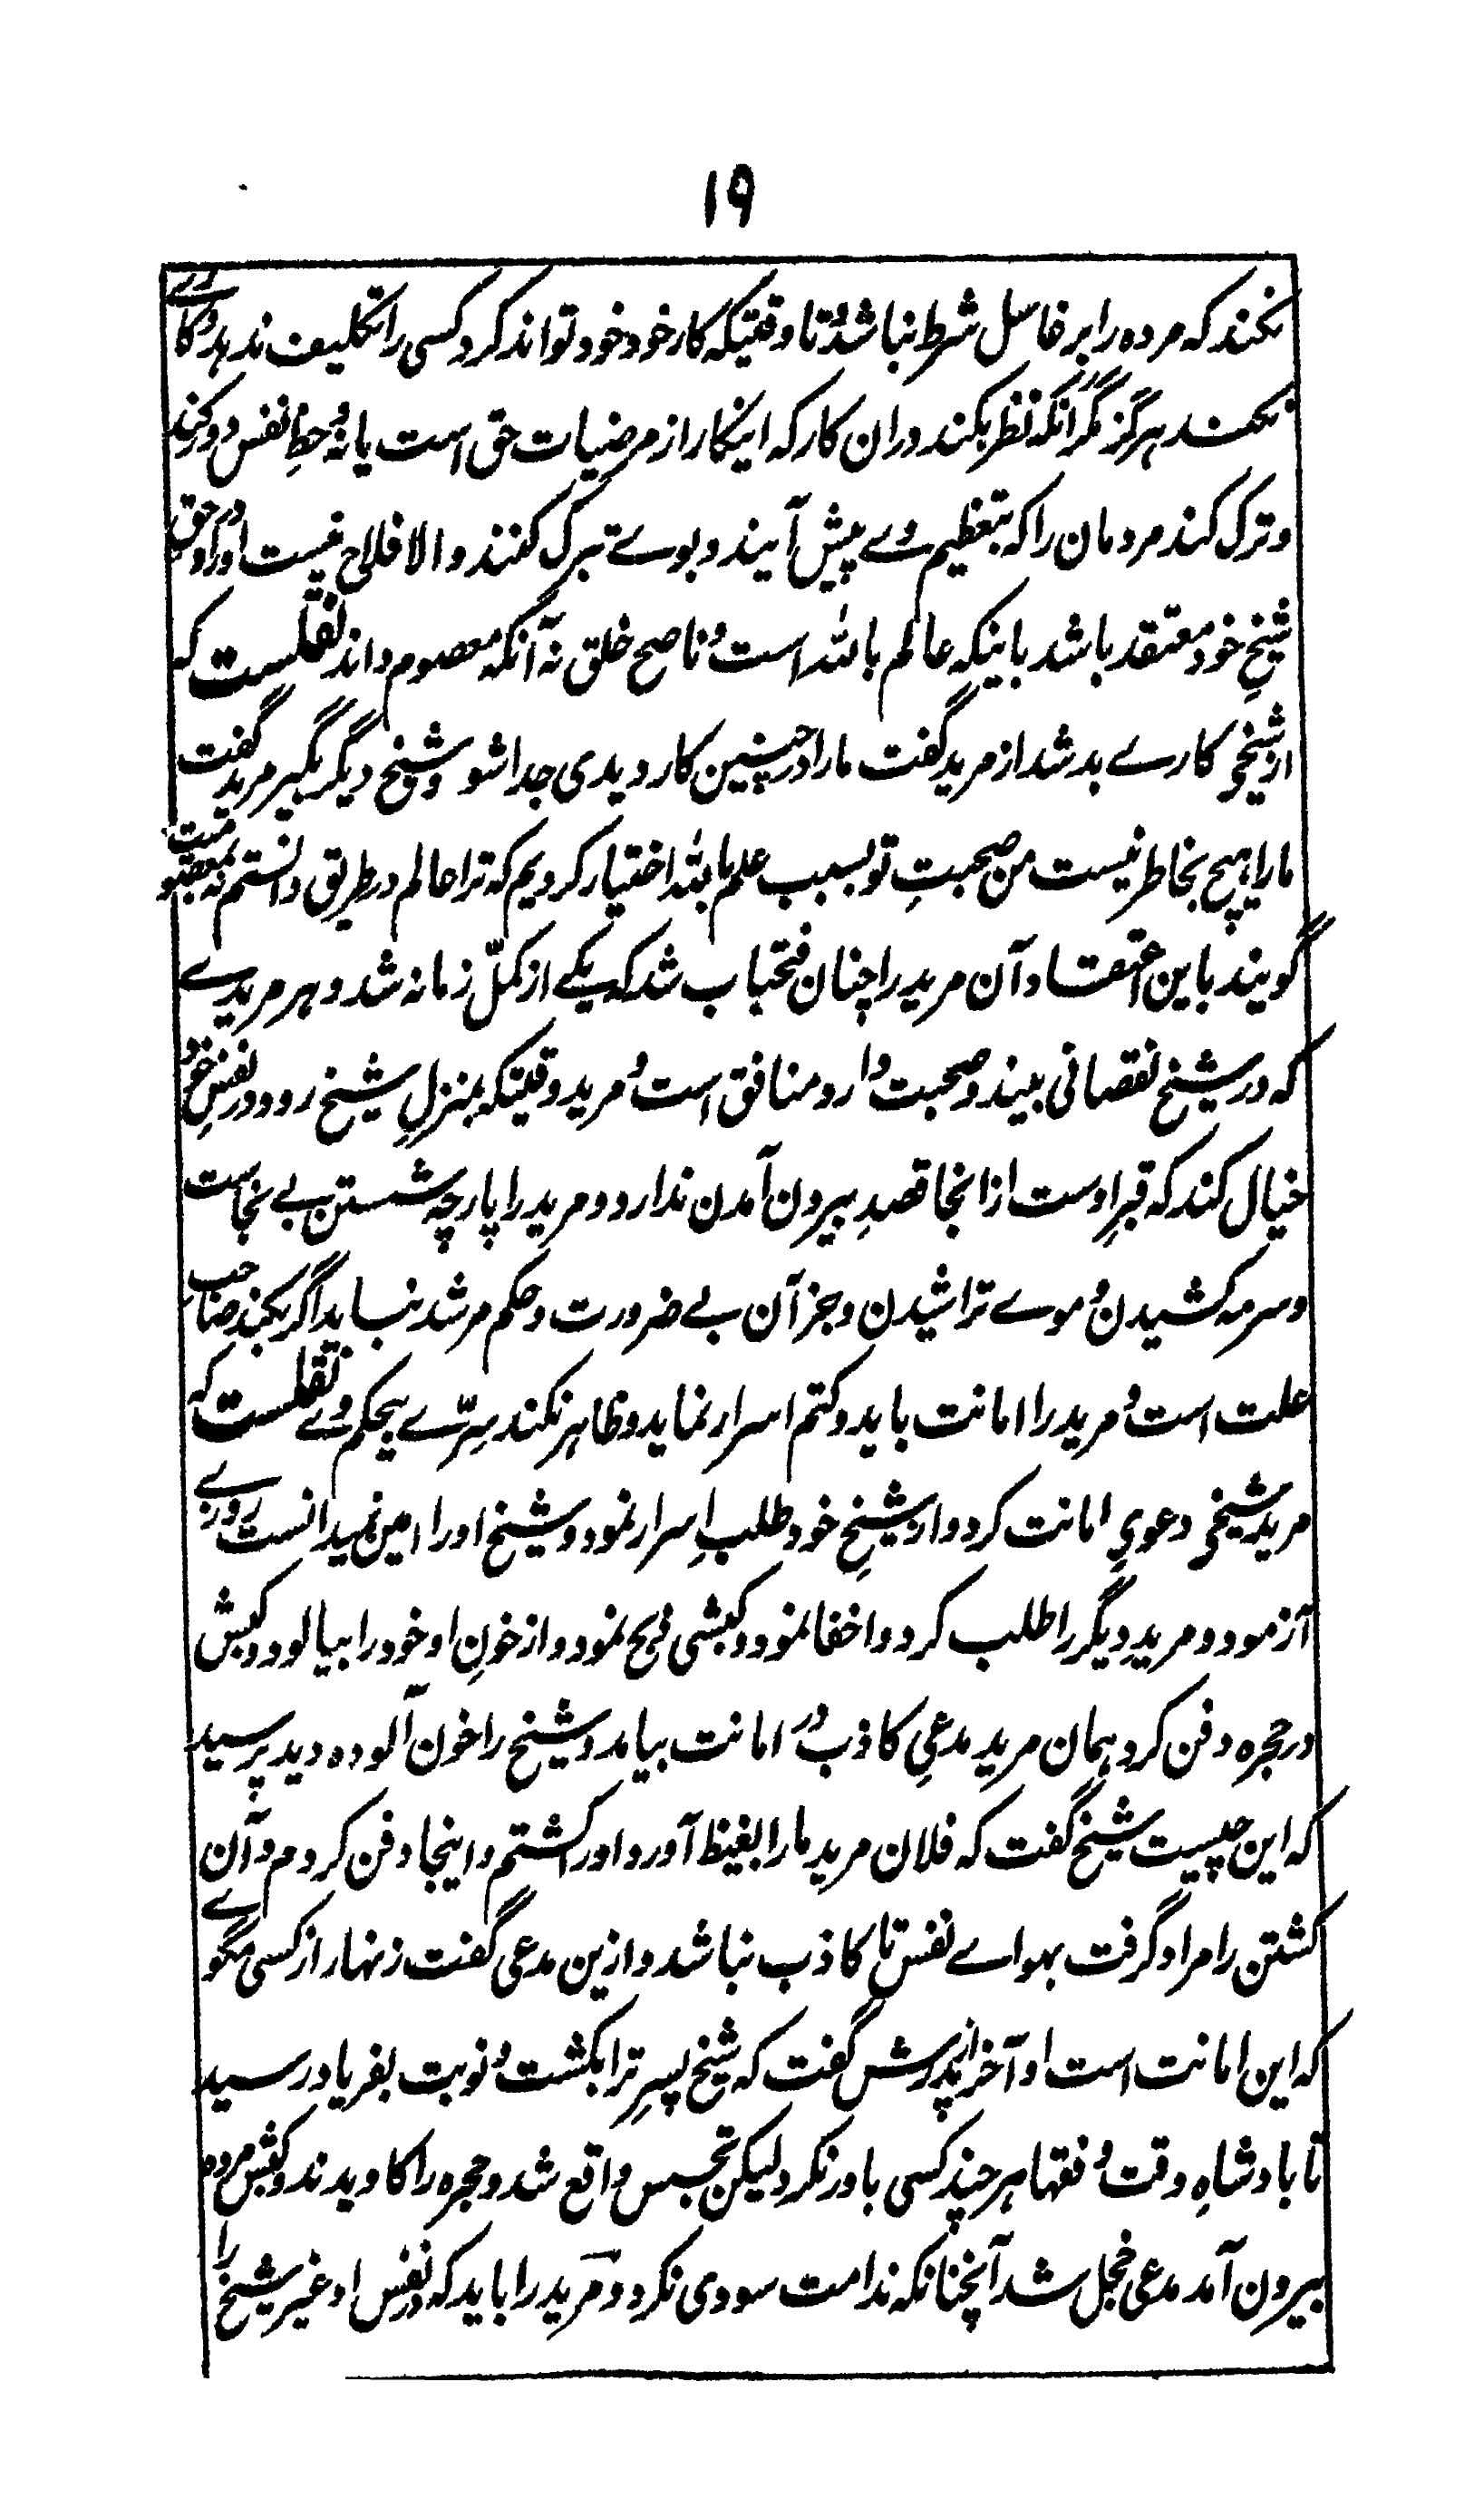 ۱۹
نکند که مرده را بر غاسل شرط نباشد و تا وقتیکه کار خود خود تواند کرد کسی را تکلیف ندهد و کارے
نکند هرگز مگر آنکه نظر بکند دران کار که اینکار از مرضیات حق است یا نه و حظِ نفس دور کند
و ترک کند مردمان را که بتعظیم وے پیش آیند و بوے تبرک کنند و الا فلاح نیست اورا و در حق
شیخِ خود معتقد باشد باینکه عالم باللہ است و ناصح خلق نه آنکه معصوم داند نقلست که
از شیخی کارے بد شد از مرید گفت مارا در چنین کار دیدی جدا شو و شیخ دیگر بگیر مرید گفت
مارا هیچ بخاطر نیست من صحبتِ تو بسبب علم باللہ اختیار کردیم که ترا عالم در طریق دانستم نه بمعصومیت
گویند باین اعتقاد آن مرید را چنان فتحباب شد که یکے از کمّل زمانه شد و هر مریدے
که در شیخ نقصانی بیند و صحبت دارد منافق است و مرید وقتیکه بمنزلِ شیخ رود در نفسِ خود
خیال کند که قبرِ اوست از انجا قصدِ بیرون آمدن ندارد و مرید را پارچه شستن بے نجاست
و سرمه کشیدن و موے تراشیدن و جز آن بے ضرورت و حکم مرشد نباید اگر بکند صاحب
علت است و مرید را امانت باید و کتم اسرار نماید و ظاهر نکند سِرّے بے حکم وے نقلست که
مرید شیخی دعویِ امانت کرد و از شیخِ خود طلبِ اسرار نمود و شیخ او را امین نمیدانست روزے
آزمود و مریدِ دیگر را طلب کرد و اخفا نمود و کبشی ذبح نمود و از خونِ او خود را بیالود و کبش
در حجره دفن کرد همان مریدِ مدعیِ کاذب در امانت بیامد و شیخ را خون آلوده دید پرسید
که این چیست شیخ گفت که فلان مرید مارا بغیظ آورد اورا کشتم و اینجا دفن کردم و آن
کشتن را مراد گرفت بهواے نفس تا کاذب نباشد و ازین مدعی گفت زنهار از کسی مگوے
که این امانت است او آخر از پدرش گفت که شیخ پسرِ ترا بکشت و نوبت بفریاد رسید
تا بادشاهِ وقت و فقها هر چند کسی باور نکرد لیکن تجسس واقع شد و حجره را کاویدند و کبش مرده
بیرون آمد مدعی خجل شد آنچنانکه ندامت سودی نکرد و مرید را باید که در نفس او غیرِ شیخ را